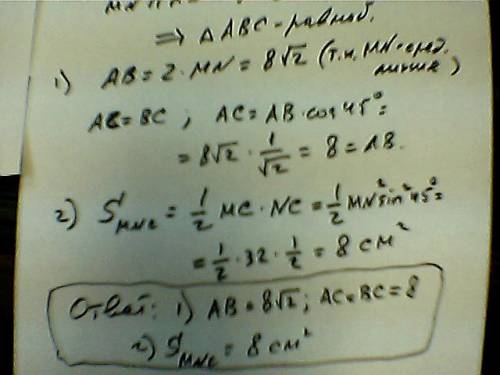 ⇒ △ABC - равноб.
1) AB = 2·MN = 8√2 (т.к. MN - сред. линия)
AC = BC ; AC = AB·cos45° =
= 8√2 · 1/√2 = 8 = AB.
2) S_MNC = 1/2 MC·NC = 1/2 MN² sin²45° =
= 1/2 · 32 · 1/2 = 8 см²
Ответ: 1) AB = 8√2 ; AC = BC = 8
2) S_MNC = 8 см²